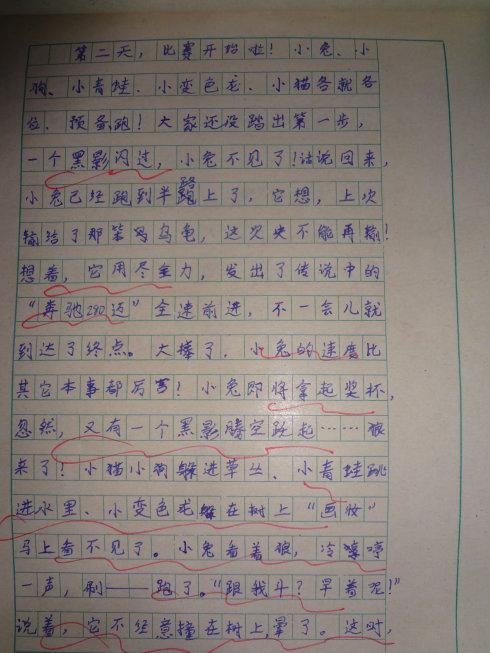 第二天，比赛开始啦！小兔、小
狗、小青蛙、小变色龙、小猫各就各
位、预备跑！大家还没踏出第一步，
一个黑影闪过，小兔不见了！话说回来，
小兔已经跑到半路上了，它想，上次
输给了那笨乌龟，这次决不能再输！
想着，它用尽全力，发出了传说中的
“奔驰290迈”全速前进，不一会儿就
到达了终点。大棒了，小兔的速度比
其它本事都厉害！小兔即将拿起奖杯，
忽然，又有一个黑影腾空跃起……狼
来了！小猫小狗躲进草丛、小青蛙跳
进水里、小变色龙躲在树上“画妆”
马上看不见了。小兔看着狼，冷哼哼
一声，刷——跑了。“跟我斗？早着呢！”
说着，它不经意撞在树上，晕了。这时，